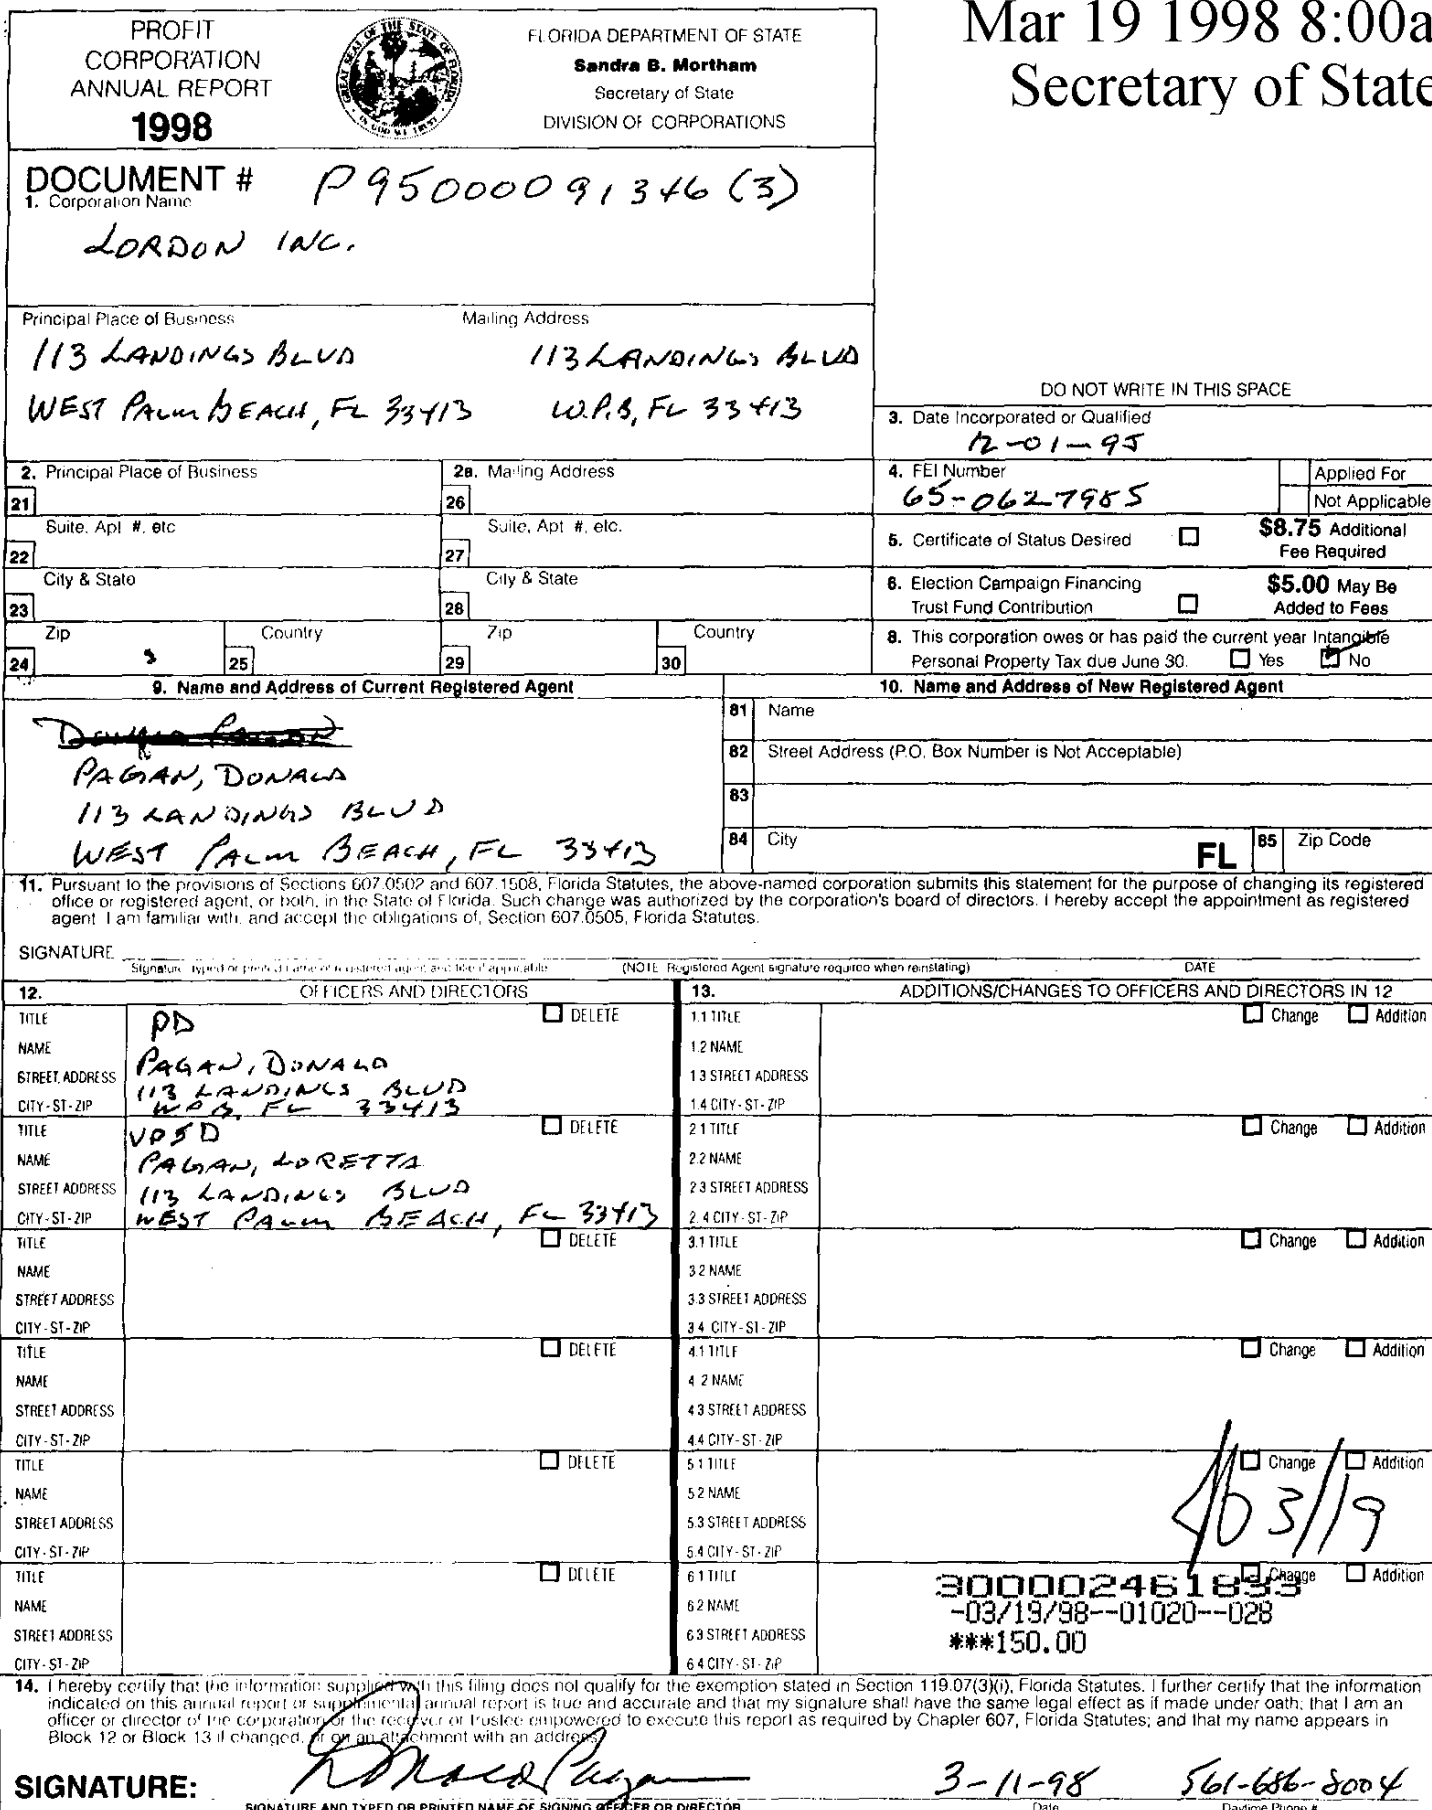 PROFIT
CORPORATION
ANNUAL REPORT
1998
FLORIDA DEPARTMENT OF STATE
Sandra B. Mortham
Secretary of State
DIVISION OF CORPORATIONS
Mar 19 1998 8:00a
Secretary of State
GREAT SEAL OF THE STATE OF FLORIDA
IN GOD WE TRUST
DOCUMENT # P95000091346 (3)
1. Corporation Name
LORDON INC.
Principal Place of Business Mailing Address
113 LANDINGS BLVD 113 LANDINGS BLVD
WEST PALM BEACH, FL 33413 W.P.B, FL 33413
DO NOT WRITE IN THIS SPACE
3. Date Incorporated or Qualified
12-01-95
2. Principal Place of Business 2a. Mailing Address
21 26
4. FEI Number Applied For
65-0627985 Not Applicable
Suite, Apt #, etc Suite, Apt #, etc.
22 27
5. Certificate of Status Desired $8.75 Additional
Fee Required
City & State City & State
23 28
6. Election Campaign Financing $5.00 May Be
Trust Fund Contribution Added to Fees
Zip Country Zip Country
24 25 29 30
8. This corporation owes or has paid the current year Intangible
Personal Property Tax due June 30. Yes No
9. Name and Address of Current Registered Agent
PAGAN, DONALD
113 LANDINGS BLVD
WEST PALM BEACH, FL 33413
10. Name and Address of New Registered Agent
81 Name
82 Street Address (P.O. Box Number is Not Acceptable)
83
84 City FL 85 Zip Code
11. Pursuant to the provisions of Sections 607.0502 and 607.1508, Florida Statutes, the above-named corporation submits this statement for the purpose of changing its registered
office or registered agent, or both, in the State of Florida. Such change was authorized by the corporation's board of directors. I hereby accept the appointment as registered
agent I am familiar with, and accept the obligations of, Section 607.0505, Florida Statutes.
SIGNATURE
Signature typed or printed name of registered agent and title if applicable (NOTE Registered Agent signature required when reinstating) DATE
12. OFFICERS AND DIRECTORS
TITLE PD DELETE
NAME PAGAN, DONALD
STREET ADDRESS 113 LANDINGS BLVD
CITY-ST-ZIP W P B, FL 33413
TITLE VPSD DELETE
NAME PAGAN, LORETTA
STREET ADDRESS 113 LANDINGS BLVD
CITY-ST-ZIP WEST PALM BEACH, FL 33413
TITLE DELETE
NAME
STREET ADDRESS
CITY-ST-ZIP
TITLE DELETE
NAME
STREET ADDRESS
CITY-ST-ZIP
TITLE DELETE
NAME
STREET ADDRESS
CITY-ST-ZIP
TITLE DELETE
NAME
STREET ADDRESS
CITY-ST-ZIP
13. ADDITIONS/CHANGES TO OFFICERS AND DIRECTORS IN 12
1.1 TITLE Change Addition
1.2 NAME
1.3 STREET ADDRESS
1.4 CITY-ST-ZIP
2.1 TITLE Change Addition
2.2 NAME
2.3 STREET ADDRESS
2.4 CITY-ST-ZIP
3.1 TITLE Change Addition
3.2 NAME
3.3 STREET ADDRESS
3.4 CITY-ST-ZIP
4.1 TITLE Change Addition
4.2 NAME
4.3 STREET ADDRESS
4.4 CITY-ST-ZIP
5.1 TITLE Change Addition
5.2 NAME
5.3 STREET ADDRESS
5.4 CITY-ST-ZIP
3/19
6.1 TITLE Change Addition
6.2 NAME
6.3 STREET ADDRESS
6.4 CITY-ST-ZIP
300002461833
-03/19/98--01020--028
***150.00
14. I hereby certify that the information supplied with this filing does not qualify for the exemption stated in Section 119.07(3)(i), Florida Statutes. I further certify that the information
indicated on this annual report or supplemental annual report is true and accurate and that my signature shall have the same legal effect as if made under oath; that I am an
officer or director of the corporation or the receiver or trustee empowered to execute this report as required by Chapter 607, Florida Statutes; and that my name appears in
Block 12 or Block 13 if changed, or on an attachment with an address
SIGNATURE: Donald Pagan 3-11-98 561-686-8004
SIGNATURE AND TYPED OR PRINTED NAME OF SIGNING OFFICER OR DIRECTOR Date Daytime Phone #